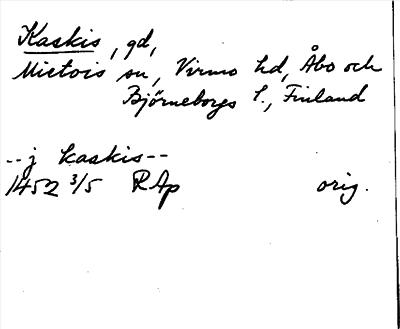 Kaskis, gd,
Mietois sn, Virmo hd, Åbo och
Björneborgs l., Finland
--j kaskis--
1452 3/5 RAp orig.